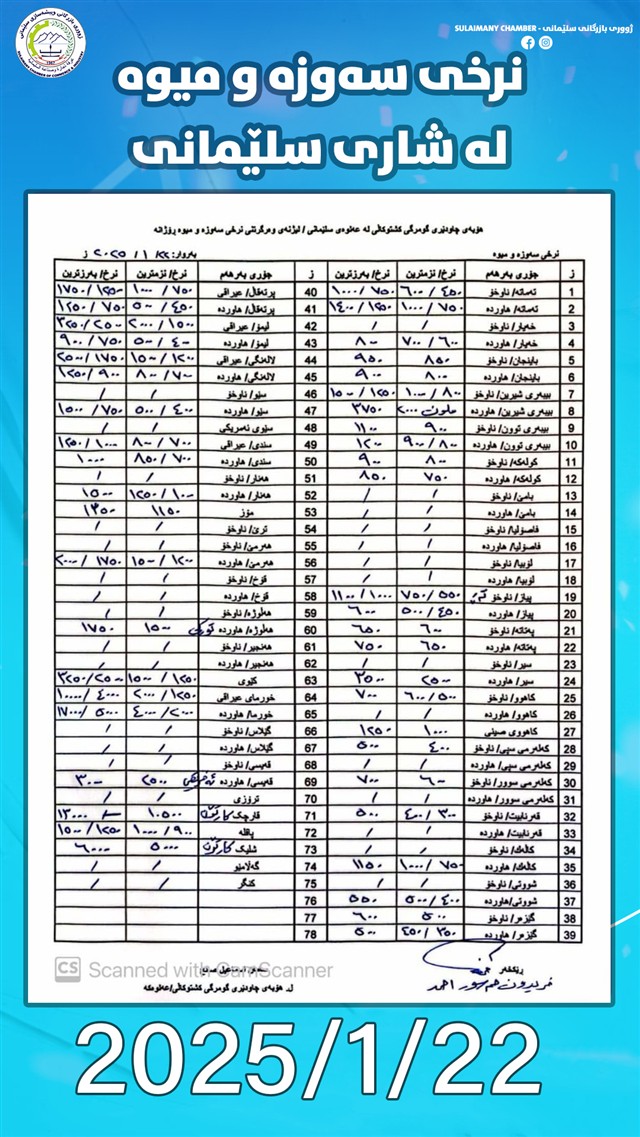 ژووری بازرگانی سلێمانی - SULAIMANY CHAMBER
نرخی سەوزە و میوە
لە شاری سلێمانی
هۆبەی چاودێری گومرگی کشتوکاڵی لە عەلوەی سلێمانی / لیژنەی وەرگرتنی نرخی سەوزە و میوە ڕۆژانە
نرخی سەوزە و میوە بەروار: ٢٢ / ١ / ٢٠٢٥ ز
ز جۆری بەرهەم نرخ/ نزمترین نرخ/ بەرزترین ز جۆری بەرهەم نرخ/ نزمترین نرخ/ بەرزترین
1 تەماتە/ ناوخۆ ٤٥٠ / ٦٠٠ ٧٥٠ / ١٠٠٠ 40 پرتەقاڵ/ عیراقی ٧٥٠ / ١٠٠٠ ١٢٥٠ / ١٧٥٠
2 تەماتە/ هاوردە ٧٥٠ / ١٠٠٠ ١٢٥٠ / ١٤٠٠ 41 پرتەقاڵ/ هاوردە ٤٥٠ / ٥٠٠ ٧٥٠ / ١٢٥٠
3 خەیار/ ناوخۆ / / 42 لیمۆ/ عیراقی ١٥٠٠ / ٢٠٠٠ ٢٥٠٠ / ٣٢٥٠
4 خەیار/ هاوردە ٦٠٠ / ٧٠٠ ٨٠٠ 43 لیمۆ/ هاوردە ٤٠٠ / ٥٠٠ ٧٥٠ / ٩٠٠
5 باینجان/ ناوخۆ ٨٥٠ ٩٥٠ 44 لالەنگی/ عیراقی ١٢٠٠ / ١٥٠٠ ١٧٥٠ / ٢٥٠٠
6 باینجان/ هاوردە ٨٠٠ ٩٠٠ 45 لالەنگی/ هاوردە ٧٠٠ / ٨٠٠ ٩٠٠ / ١٢٥٠
7 بیبەری شیرین/ ناوخۆ ٨٠٠ / ١٠٠٠ ١٢٥٠ / ١٥٠٠ 46 سێو/ ناوخۆ / /
8 بیبەری شیرین/ هاوردە ملون ٢٠٠٠ ٣٧٥٠ 47 سێو/ هاوردە ٤٠٠ / ٥٠٠ ٧٥٠ / ١٥٠٠
9 بیبەری توون/ ناوخۆ ٩٠٠ ١١٠٠ 48 سێوی ئەمریکی / /
10 بیبەری توون/ هاوردە ٨٠٠ / ٩٠٠ ١٢٠٠ 49 سندی/ عیراقی ٧٠٠ / ٨٠٠ ١٠٠٠ / ١٢٥٠
11 کولەکە/ ناوخۆ ٨٠٠ ٩٠٠ 50 سندی/ هاوردە ٧٠٠ / ٨٥٠ ١٠٠٠
12 کولەکە/ هاوردە ٧٥٠ ٨٥٠ 51 هەنار/ ناوخۆ / /
13 بامێ/ ناوخۆ / / 52 هەنار/ هاوردە ١٠٠٠ / ١٢٥٠ ١٥٠٠
14 بامێ/ هاوردە / / 53 مۆز ١١٥٠ ١٣٥٠
15 فاصۆلیا/ ناوخۆ / / 54 ترێ/ ناوخۆ / /
16 فاصۆلیا/ هاوردە / / 55 هەرمێ/ ناوخۆ / /
17 لۆبیا/ ناوخۆ / / 56 هەرمێ/ هاوردە ١٢٠٠ / ١٥٠٠ ١٧٥٠ / ٢٠٠٠
18 لۆبیا/ هاوردە / / 57 قۆخ/ ناوخۆ / /
19 پیاز/ ناوخۆ ٥٥٠ / ٧٥٠ ١٠٠٠ / ١١٠٠ 58 قۆخ/ هاوردە / /
20 پیاز/ هاوردە ٤٥٠ / ٥٠٠ ٦٠٠ 59 هەڵوژە/ ناوخۆ / /
21 پەتاتە/ ناوخۆ ٦٠٠ ٦٥٠ 60 هەڵوژە/ هاوردە ١٥٠٠ ١٧٥٠
22 پەتاتە/ هاوردە ٦٥٠ ٧٥٠ 61 هەنجیر/ ناوخۆ / /
23 سیر/ ناوخۆ / / 62 هەنجیر/ هاوردە / /
24 سیر/ هاوردە ٢٥٠٠ ٣٥٠٠ 63 کێوی ١٢٥٠ / ١٥٠٠ ٢٥٠٠ / ٣٢٥٠
25 کاهوو/ ناوخۆ ٥٠٠ / ٦٠٠ ٧٠٠ 64 خورمای عیراقی ١٢٥٠ / ٢٠٠٠ ٤٠٠٠ / ١٠٠٠٠
26 کاهوو/ هاوردە / / 65 خورما/ هاوردە ٢٠٠٠ / ٤٠٠٠ ٥٠٠٠ / ١٧٠٠٠
27 کاهووی صینی ١٠٠٠ ١٢٥٠ 66 گێلاس/ ناوخۆ / /
28 کەلەرمی سپی/ ناوخۆ ٤٠٠ ٥٠٠ 67 گێلاس/ هاوردە / /
29 کەلەرمی سپی/ هاوردە / / 68 قەیسی/ ناوخۆ / /
30 کەلەرمی سوور/ ناوخۆ ٦٠٠ ٧٠٠ 69 قەیسی/ هاوردە ٢٥٠٠ ٣٠٠٠
31 کەلەرمی سوور/ هاوردە / / 70 تروزی / /
32 قەرنابیت/ ناوخۆ ٣٠٠ / ٤٠٠ ٥٠٠ 71 قارچک کارتۆن ١٠٥٠٠ ١٣٠٠٠
33 قەرنابیت/ هاوردە / / 72 پاقلە ٩٠٠ / ١٠٠٠ ١٢٥٠ / ١٥٠٠
34 کاڵەک/ ناوخۆ / / 73 شلیک کارتۆن ٥٠٠٠ ٦٠٠٠
35 کاڵەک/ هاوردە ٧٥٠ / ١٠٠٠ ١١٥٠ 74 گەلامێو / /
36 شووتی/ ناوخۆ / / 75 کنگر / /
37 شووتی/هاوردە ٤٠٠ / ٥٠٠ ٥٥٠ 76
38 گێزەر/ ناوخۆ ٥٠٠ ٦٠٠ 77
39 گێزەر/ هاوردە ٣٥٠ / ٤٥٠ ٥٠٠ 78
ڕێکخەر
فریدون احمد
ل. هۆبەی چاودێری گومرگی کشتوکاڵی/عەلوەکە
CS Scanned with CamScanner
2025/1/22